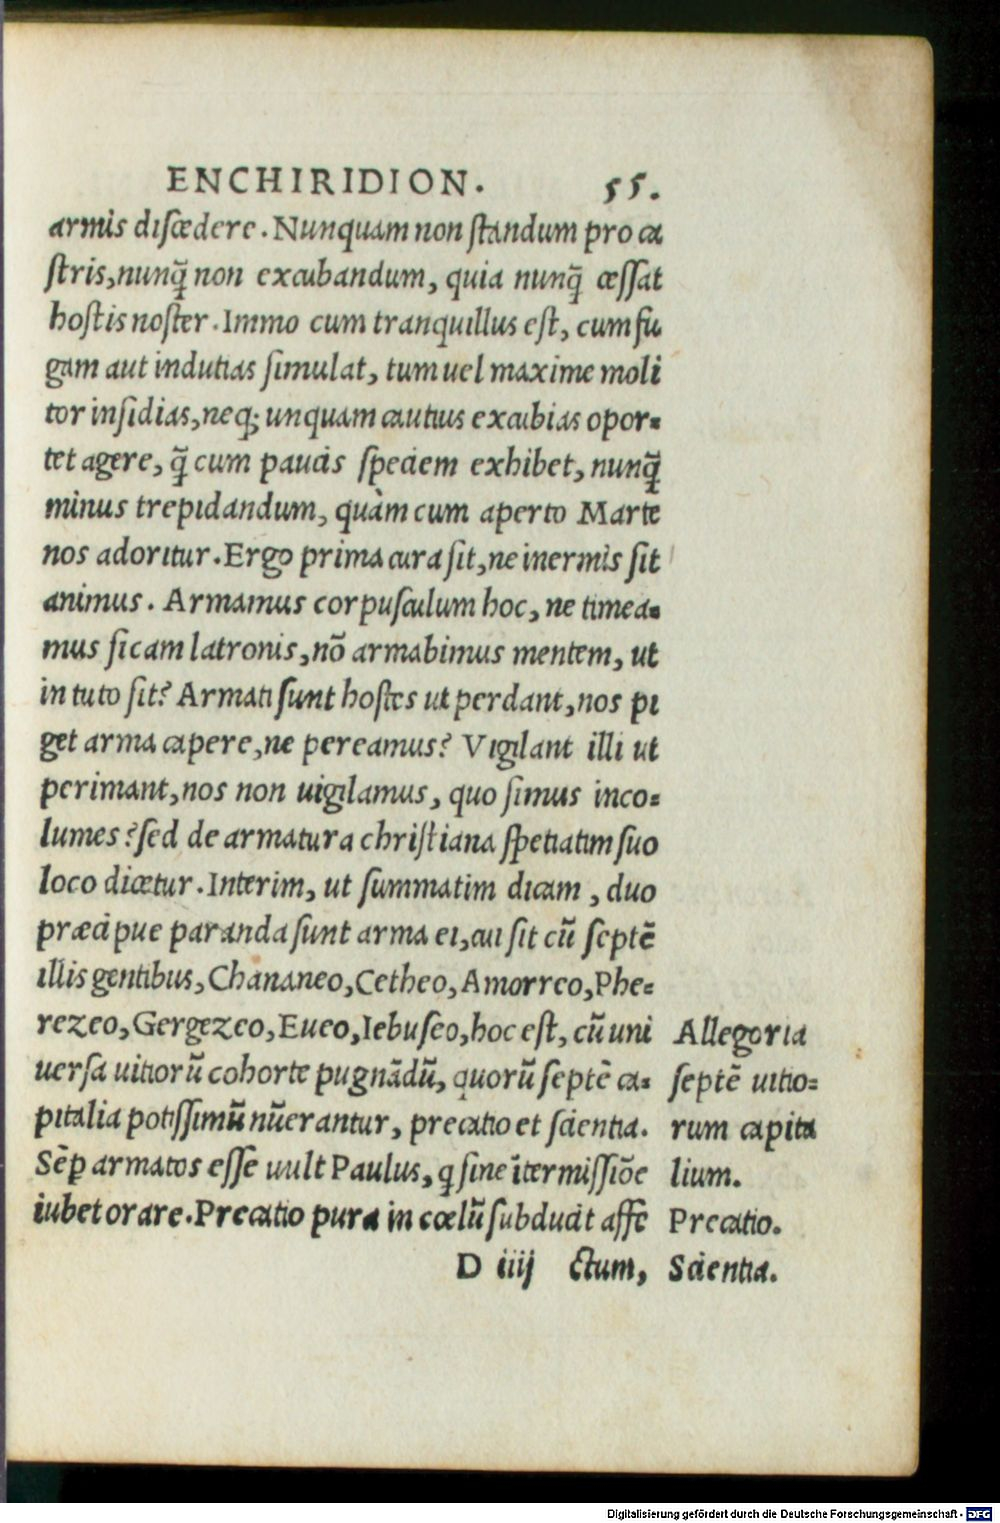 ENCHIRIDION. 55.
armis discedere. Nunquam non standum pro ca
stris, nunq̃ non excubandum, quia nunq̃ cessat
hostis noster. Immo cum tranquillus est, cum fu
gam aut indutias simulat, tum uel maxime moli
tor insidias, neq; unquam cautius excubias opor-
tet agere, q̃ cum pacis speciem exhibet, nunq̃
minus trepidandum, quàm cum aperto Marte
nos adoritur. Ergo prima cura sit, ne inermis sit
animus. Armamus corpusculum hoc, ne timea-
mus sicam latronis, nõ armabimus mentem, ut
in tuto sit? Armati sunt hostes ut perdant, nos pi
get arma capere, ne pereamus? Vigilant illi ut
perimant, nos non uigilamus, quo simus inco-
lumes? sed de armatura christiana spetiatim suo
loco dicetur. Interim, ut summatim dicam, duo
præcipue paranda sunt arma ei, cui sit cũ septẽ
illis gentibus, Chananeo, Cetheo, Amorreo, Phe-
rezeo, Gergezeo, Eueo, Iebuseo, hoc est, cũ uni
uersa uitiorũ cohorte pugnãdũ, quorũ septẽ ca-
pitalia potissimũ nũerantur, precatio et scientia.
Sẽp armatos esse uult Paulus, q sine ĩtermissiõe
iubet orare. Precatio pura in cœlũ subducit affe
D iiij ctum,
Allegoria
septẽ uitio-
rum capita
lium.
Precatio.
Scientia.
Digitalisierung gefördert durch die Deutsche Forschungsgemeinschaft - DFG